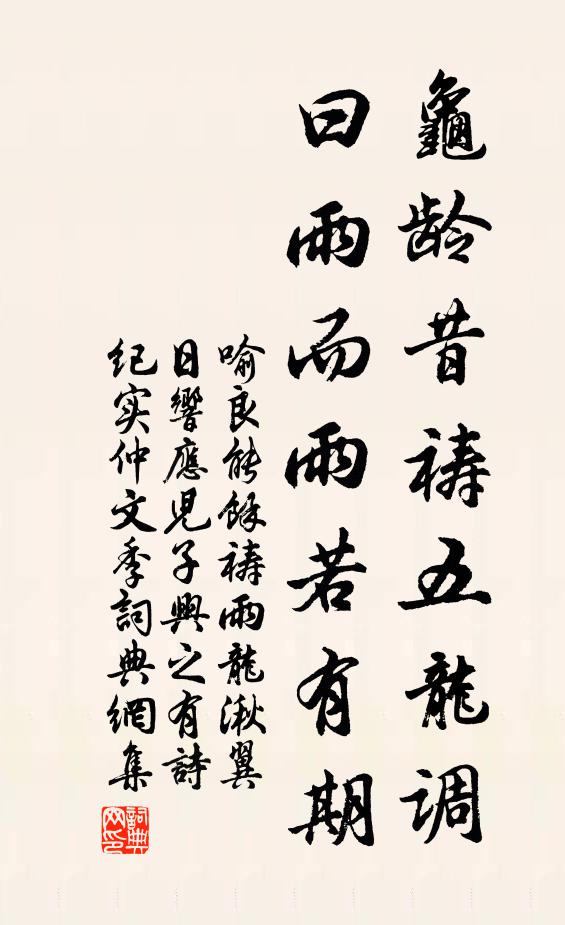 龜龄昔祷五龍调
曰雨而雨若有期
喻良能餘祷雨龍湫翼
日響應児子興之有詩
纪实仲文季詞典網集
詞典網印